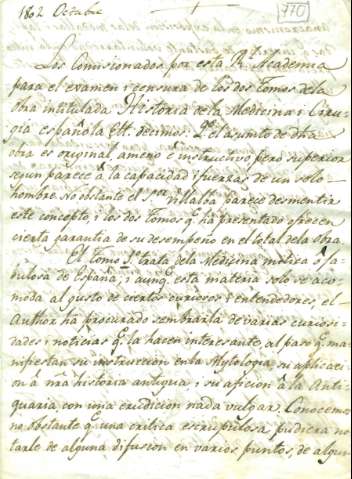 1802 Octubre
770
Los Comisionados por esta Rl. Academia
para el examen i censura de los dos tomos de la
obra intitulada Historia de la Medicina i Ciru-
gia española &c. decimos: Qe. el asunto de dha
obra es original, ameno é instructivo pero superior
segun parece à la capacidad i fuerzas de un solo
hombre. No obstante el Sor. Villalba parece desmentir
este concepto, i los dos tomos qe. ha presentado ofrecen
cierta garantia de su desempeño en el total de la obra
El tomo 1º. trata de la Medicina mitica ò fa-
bulosa de España; i aunqe. esta materia solo se aco-
moda al gusto de ciertos curiosos i entendedores, el
Author hà procurado sembrarla de varias curiosi-
dades i noticias qe. la hacen interesante, al paso qe. ma-
nifiestan su instruccion en la Mytologia, su aplicaci-
on à nra historia antigua, i su aficion à la Anti-
quaria con una erudicion nada vulgar. Conocemos
no obstante qe. una critica escrupulosa, pudiera no-
tarle de alguna difusion en varios puntos, de algun